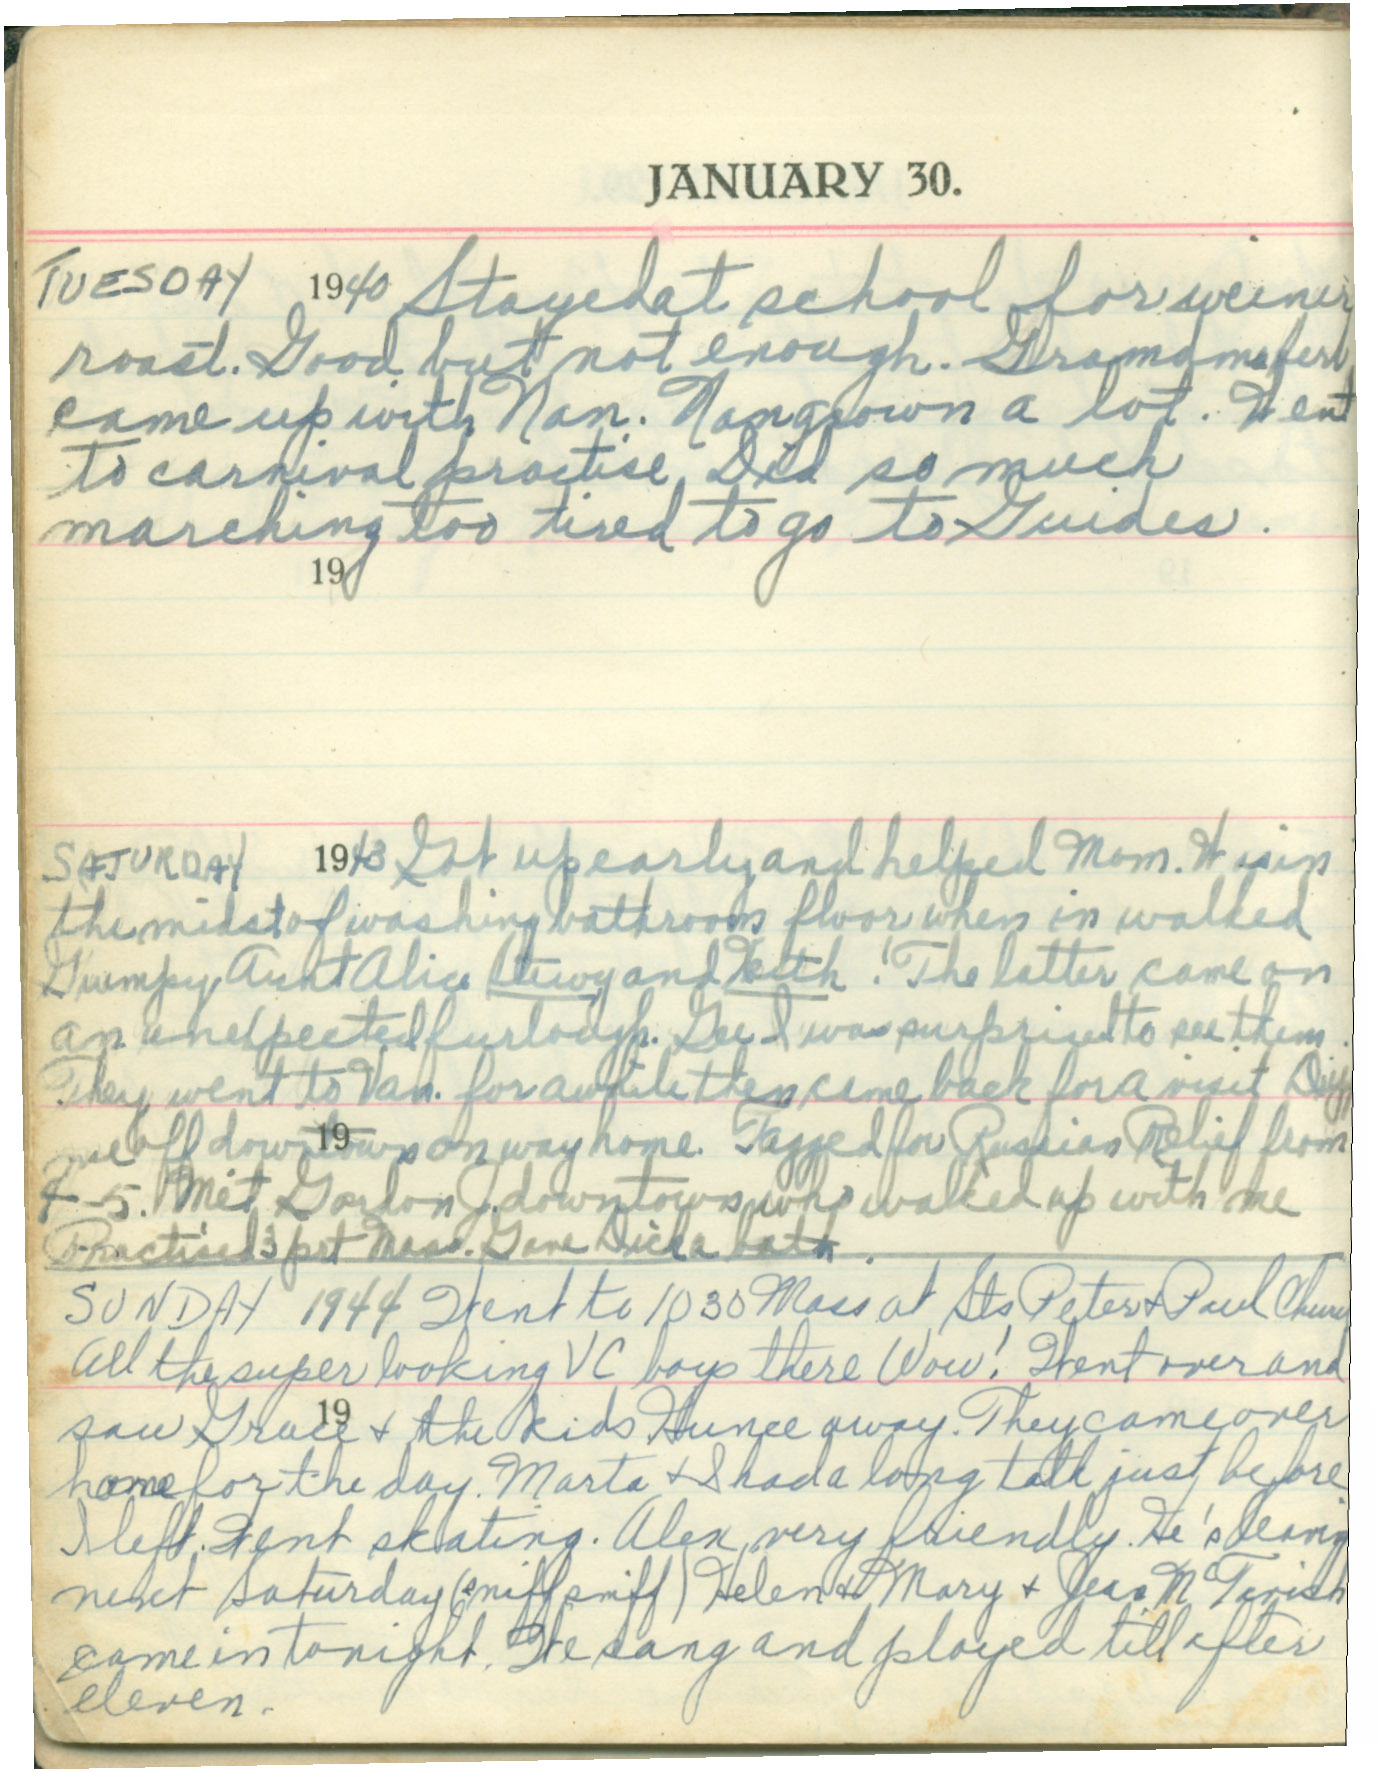 JANUARY 30.
TUESDAY 1940 Stayed at school for weiner
roast. Good but not enough. Grandma
came up with Nan. Nan grown a lot. Went
to carnival practise. Did so much
marching too tired to go to Guides.
19
SATURDAY 1943 Got up early and helped Mom. Was in
the midst of washing bathroom floor when in walked
Grumpy, Aunt Alice and Keith! The latter came on
an unexpected furlough. Gee I was surprised to see them.
They went to Van. for awhile then came back for a visit
me off downtown on way home. Tagged for Russian Relief from
4-5. Met Gordon J. downtown who walked up with me
19
Practised 3 prt Mass. Gave Dick a bath.
SUNDAY 1944 Went to 1030 Mass at Sts Peter & Paul Church
All the super looking VC boys there Wow! Went over and
19
saw Grace & the kids away. They came over
home for the day. Marta & I had a long talk just before
I left. Went skating. Alex very friendly. He's leaving
next Saturday (sniff sniff) Helen & Mary & Jean McTavish
came in tonight. We sang and played till after
eleven.